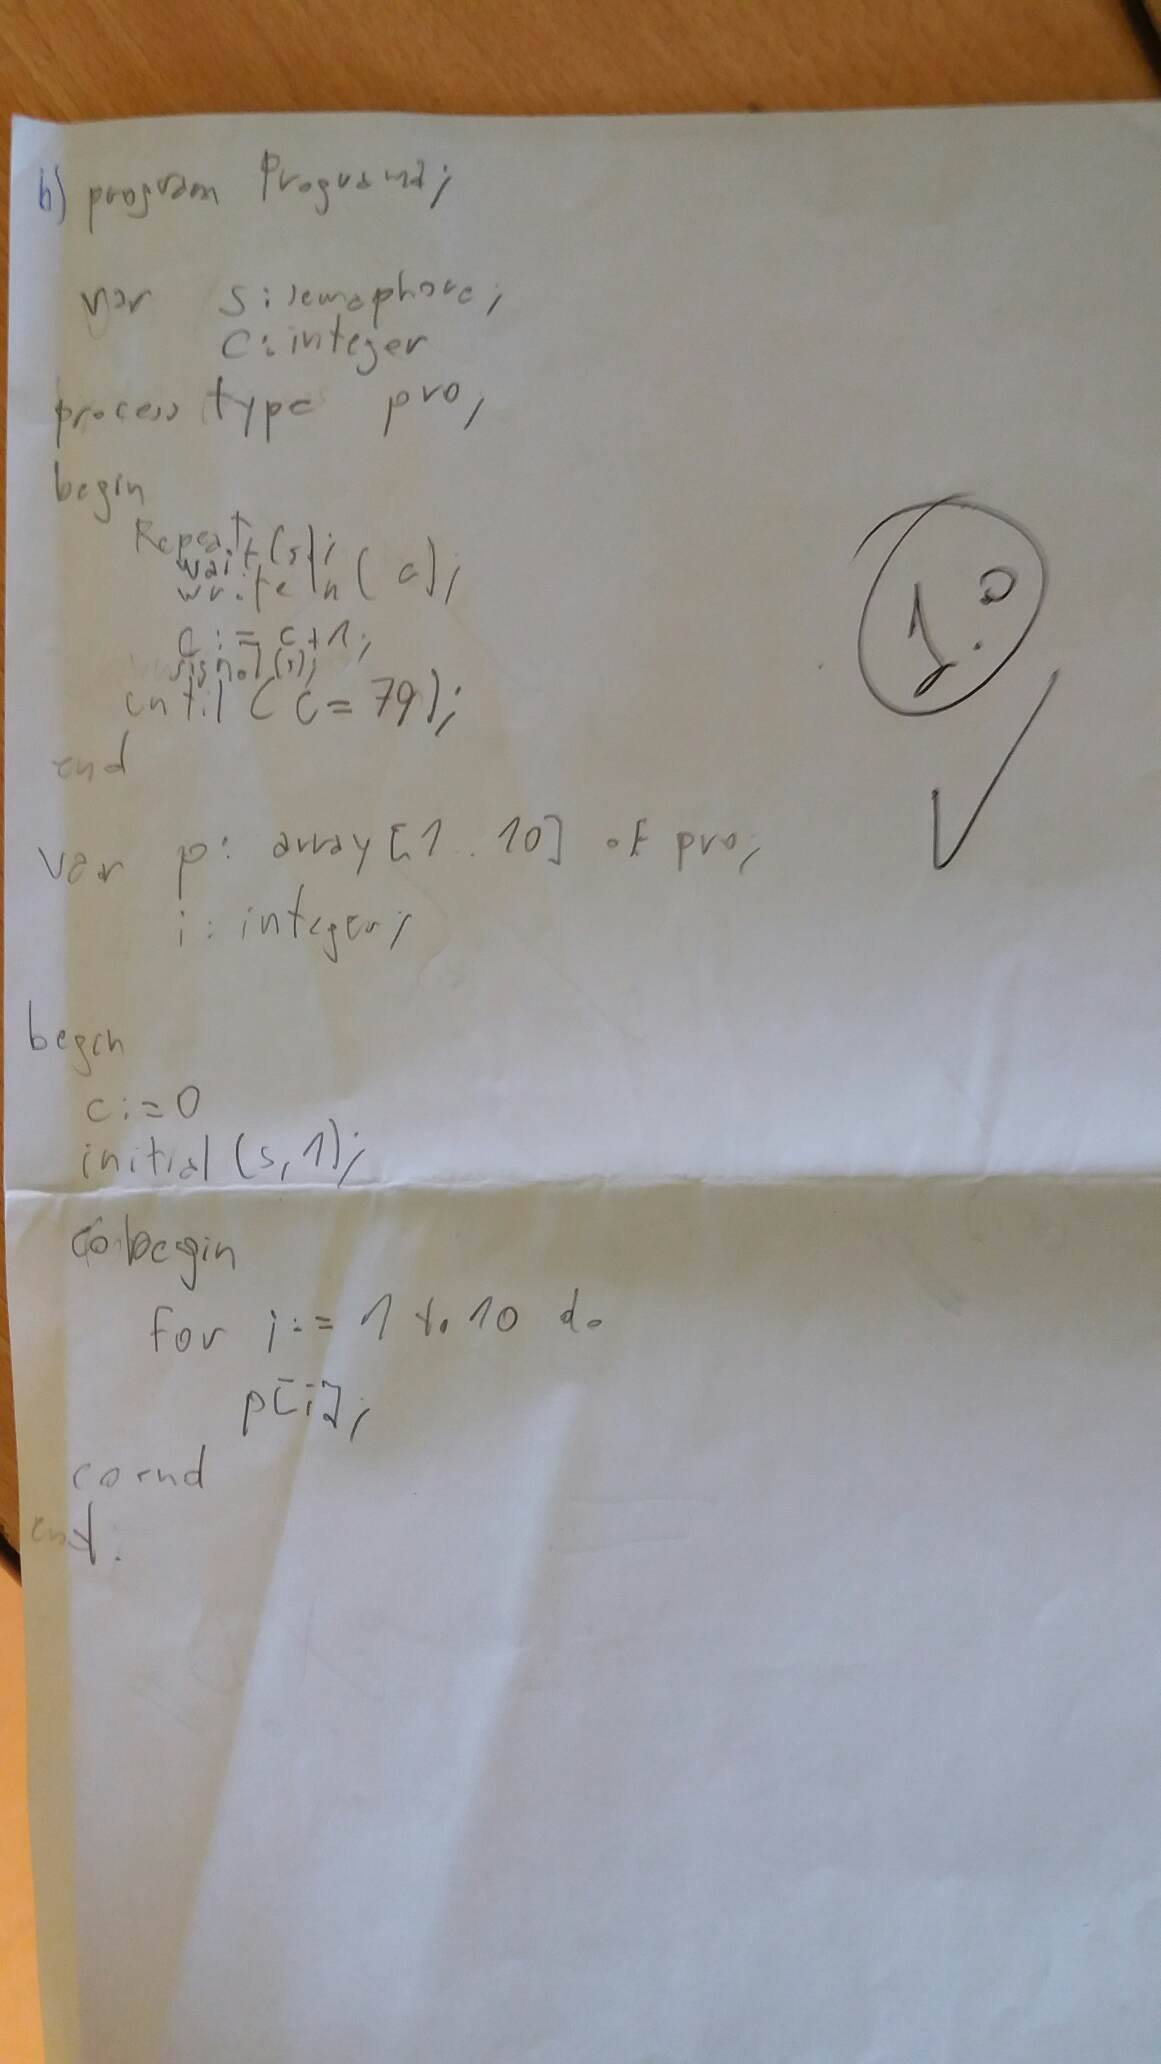 b) program Programa;
var s: semaphore;
c: integer
process type pro;
begin
Repeat
wait(s);
writeln(c);
c := c+1;
signal(s);
until (c = 79);
end
var p: array[1..10] of pro;
i: integer;
begin
c:=0
initial(s,1);
cobegin
for i:= 1 to 10 do
p[i];
coend
end.
1.0